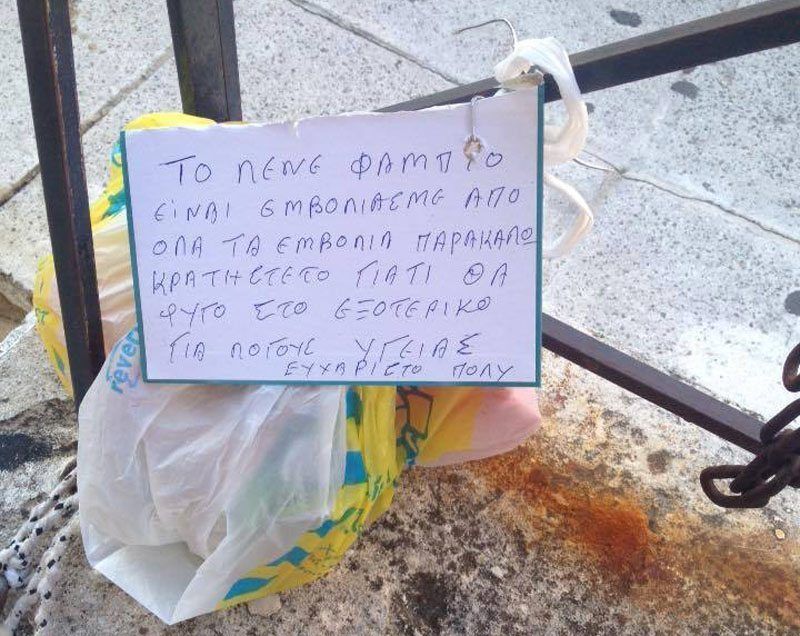 ΤΟ ΛΕΝΕ ΦΑΜΠΙΟ
ΕΙΝΑΙ ΕΜΒΟΛΙΑΣΜΕ ΑΠΟ
ΟΛΑ ΤΑ ΕΜΒΟΛΙΑ ΠΑΡΑΚΑΛΩ
ΚΡΑΤΗΣΤΕΤΟ ΓΙΑΤΙ ΘΑ
ΦΥΓΟ ΣΤΟ ΕΞΟΤΕΡΙΚΟ
ΓΙΑ ΛΟΓΟΥΣ ΥΓΕΙΑΣ
ΕΥΧΑΡΙΣΤΟ ΠΟΛΥ